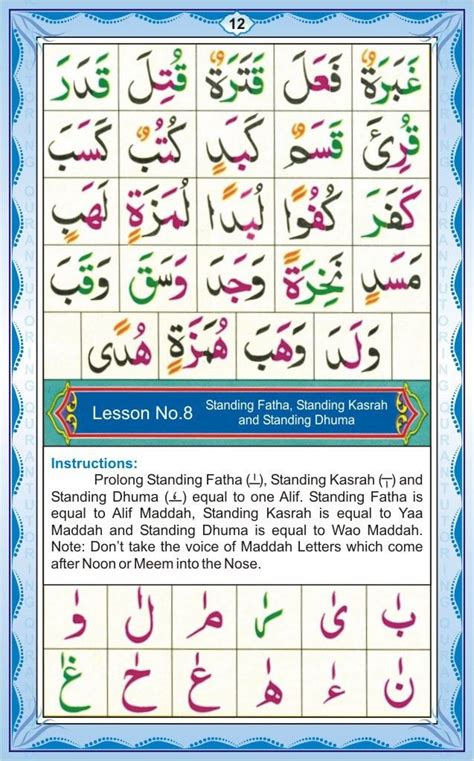 12
غَبَرَةٌ فَعَلَ قَتَرَةٌ قُتِلَ قَدَرَ
قُرِئَ قَسَمٌ كَبَدٍ كُتُبٌ كَسَبَ
كَفَرَ كُفُوًا لُبَدًا لُمَزَةٍ لَهَبٍ
مَسَدٍ نَخِرَةً وَجَدَ وَسَقَ وَقَبَ
وَلَدَ وَهَبَ هُمَزَةٍ هُدًى
Lesson No.8
Standing Fatha, Standing Kasrah
and Standing Dhuma
Instructions:
Prolong Standing Fatha (ـٰـ), Standing Kasrah (ـٖـ) and
Standing Dhuma (ـٗـ) equal to one Alif. Standing Fatha is
equal to Alif Maddah, Standing Kasrah is equal to Yaa
Maddah and Standing Dhuma is equal to Wao Maddah.
Note: Don't take the voice of Maddah Letters which come
after Noon or Meem into the Nose.
بٰ یٰ رٰ مٰ لٰ وٰ
نٰ هٰ ءٰ عٰ حٰ غٰ